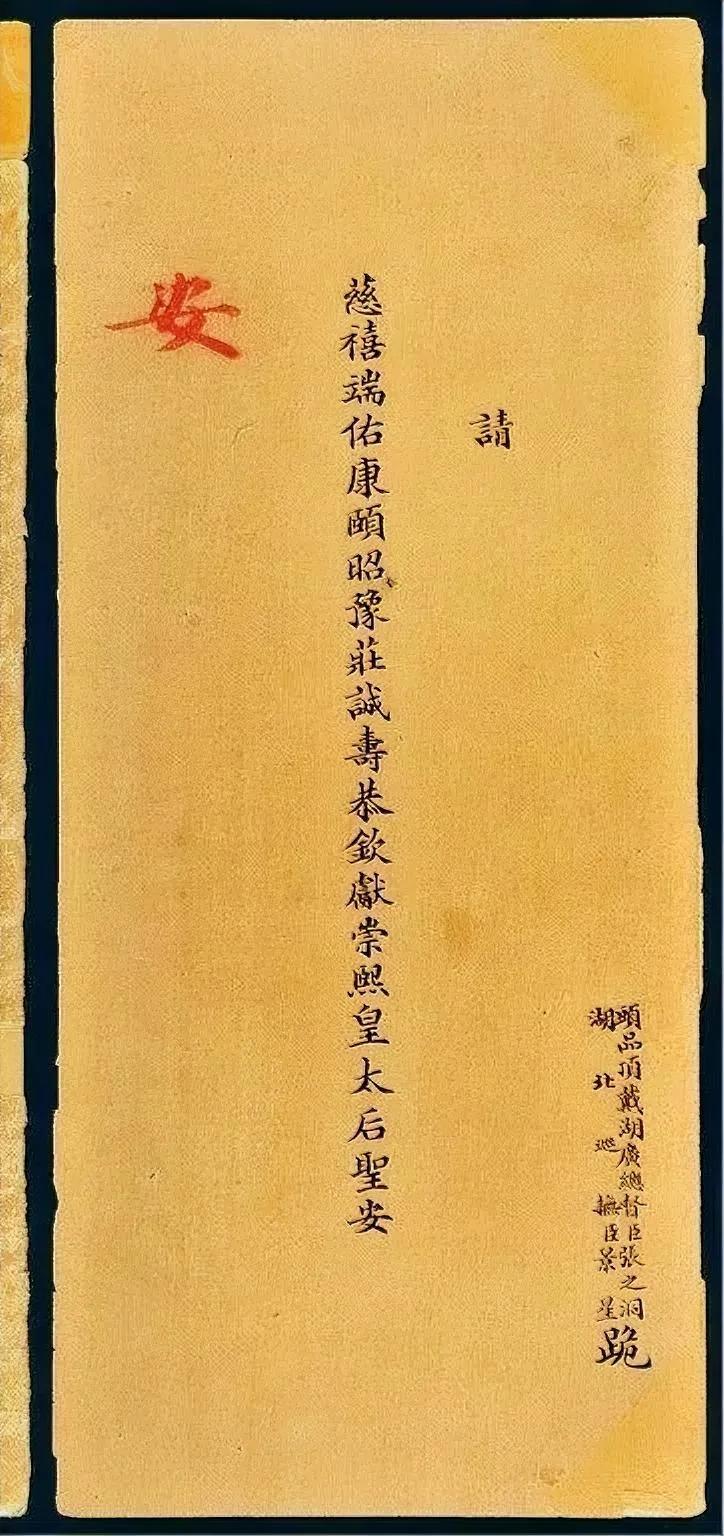 頭品頂戴湖廣總督臣張之洞
湖北巡撫臣景星
跪
請
慈禧端佑康頤昭豫莊誠壽恭欽獻崇熙皇太后聖安
安